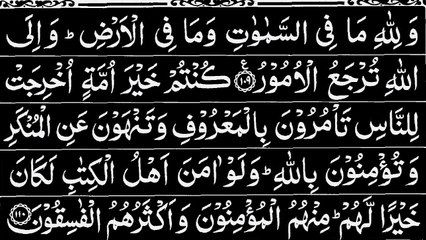 وَ لِلّٰهِ مَا فِی السَّمٰوٰتِ وَمَا فِی الْاَرْضِ ؕ وَ اِلَی
اللّٰهِ تُرْجَعُ الْاُمُوْرُ ﴿۱۰۹﴾ ع کُنْتُمْ خَیْرَ اُمَّةٍ اُخْرِجَتْ
لِلنَّاسِ تَاْمُرُوْنَ بِالْمَعْرُوْفِ وَتَنْهَوْنَ عَنِ الْمُنْکَرِ
وَ تُؤْمِنُوْنَ بِاللّٰهِ ؕ وَلَوْ اٰمَنَ اَهْلُ الْکِتٰبِ لَکَانَ
خَیْرًا لَّهُمْ ؕ مِنْهُمُ الْمُؤْمِنُوْنَ وَ اَکْثَرُهُمُ الْفٰسِقُوْنَ ﴿۱۱۰﴾